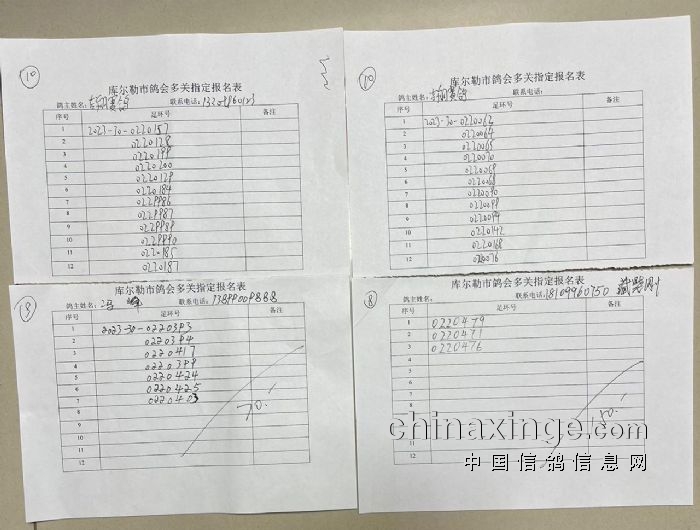 10
库尔勒市鸽会多关指定报名表
鸽主姓名：
联系电话：
序号 足环号 备注
1 2023-30-0220157
2 0220128
3 0220199
4 0220200
5 0220129
6 0220184
7 0229986
8 0229987
9 0229989
10 0229990
11 0220185
12 0220187
10
库尔勒市鸽会多关指定报名表
鸽主姓名：
联系电话：
序号 足环号 备注
1 2023-30-0220062
2 0220064
3 0220065
4 0220070
5 0220069
6 0220068
7 0220090
8 0220099
9 0220094
10 0220142
11 0220168
12 020076
18
库尔勒市鸽会多关指定报名表
鸽主姓名：冯峰
联系电话：
序号 足环号 备注
1 2023-30-0220393
2 0220394
3 0220417
4 0220399
5 0220424
6 0220425
7 0220403
8
9
10
11
12
8
库尔勒市鸽会多关指定报名表
鸽主姓名：
联系电话：18109960750
序号 足环号 备注
1 0220479
2 0220471
3 0220476
4
5
6
7
8
9
10
11
12
chinaxinge.com
中国信鸽信息网